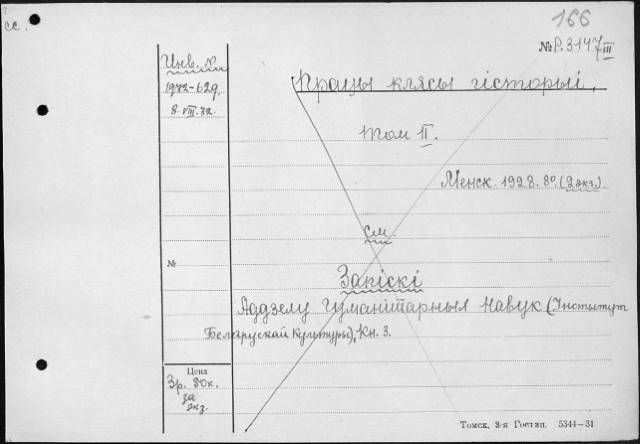 сс.
166
№ Р.3147 III
Инв. №
1972-629.
8.VIII.32.
Працы клясы гісторыі.
том II.
Менск. 1928. 8°. (2 экз.).
см.
№
Запіскі
Аддзелу Гуманітарных Навук (Інстытут
Беларускай Культуры), Кн. 3.
Цена
3р. 80к.
за
экз.
Томск, 3-я Гостип. 5344—31